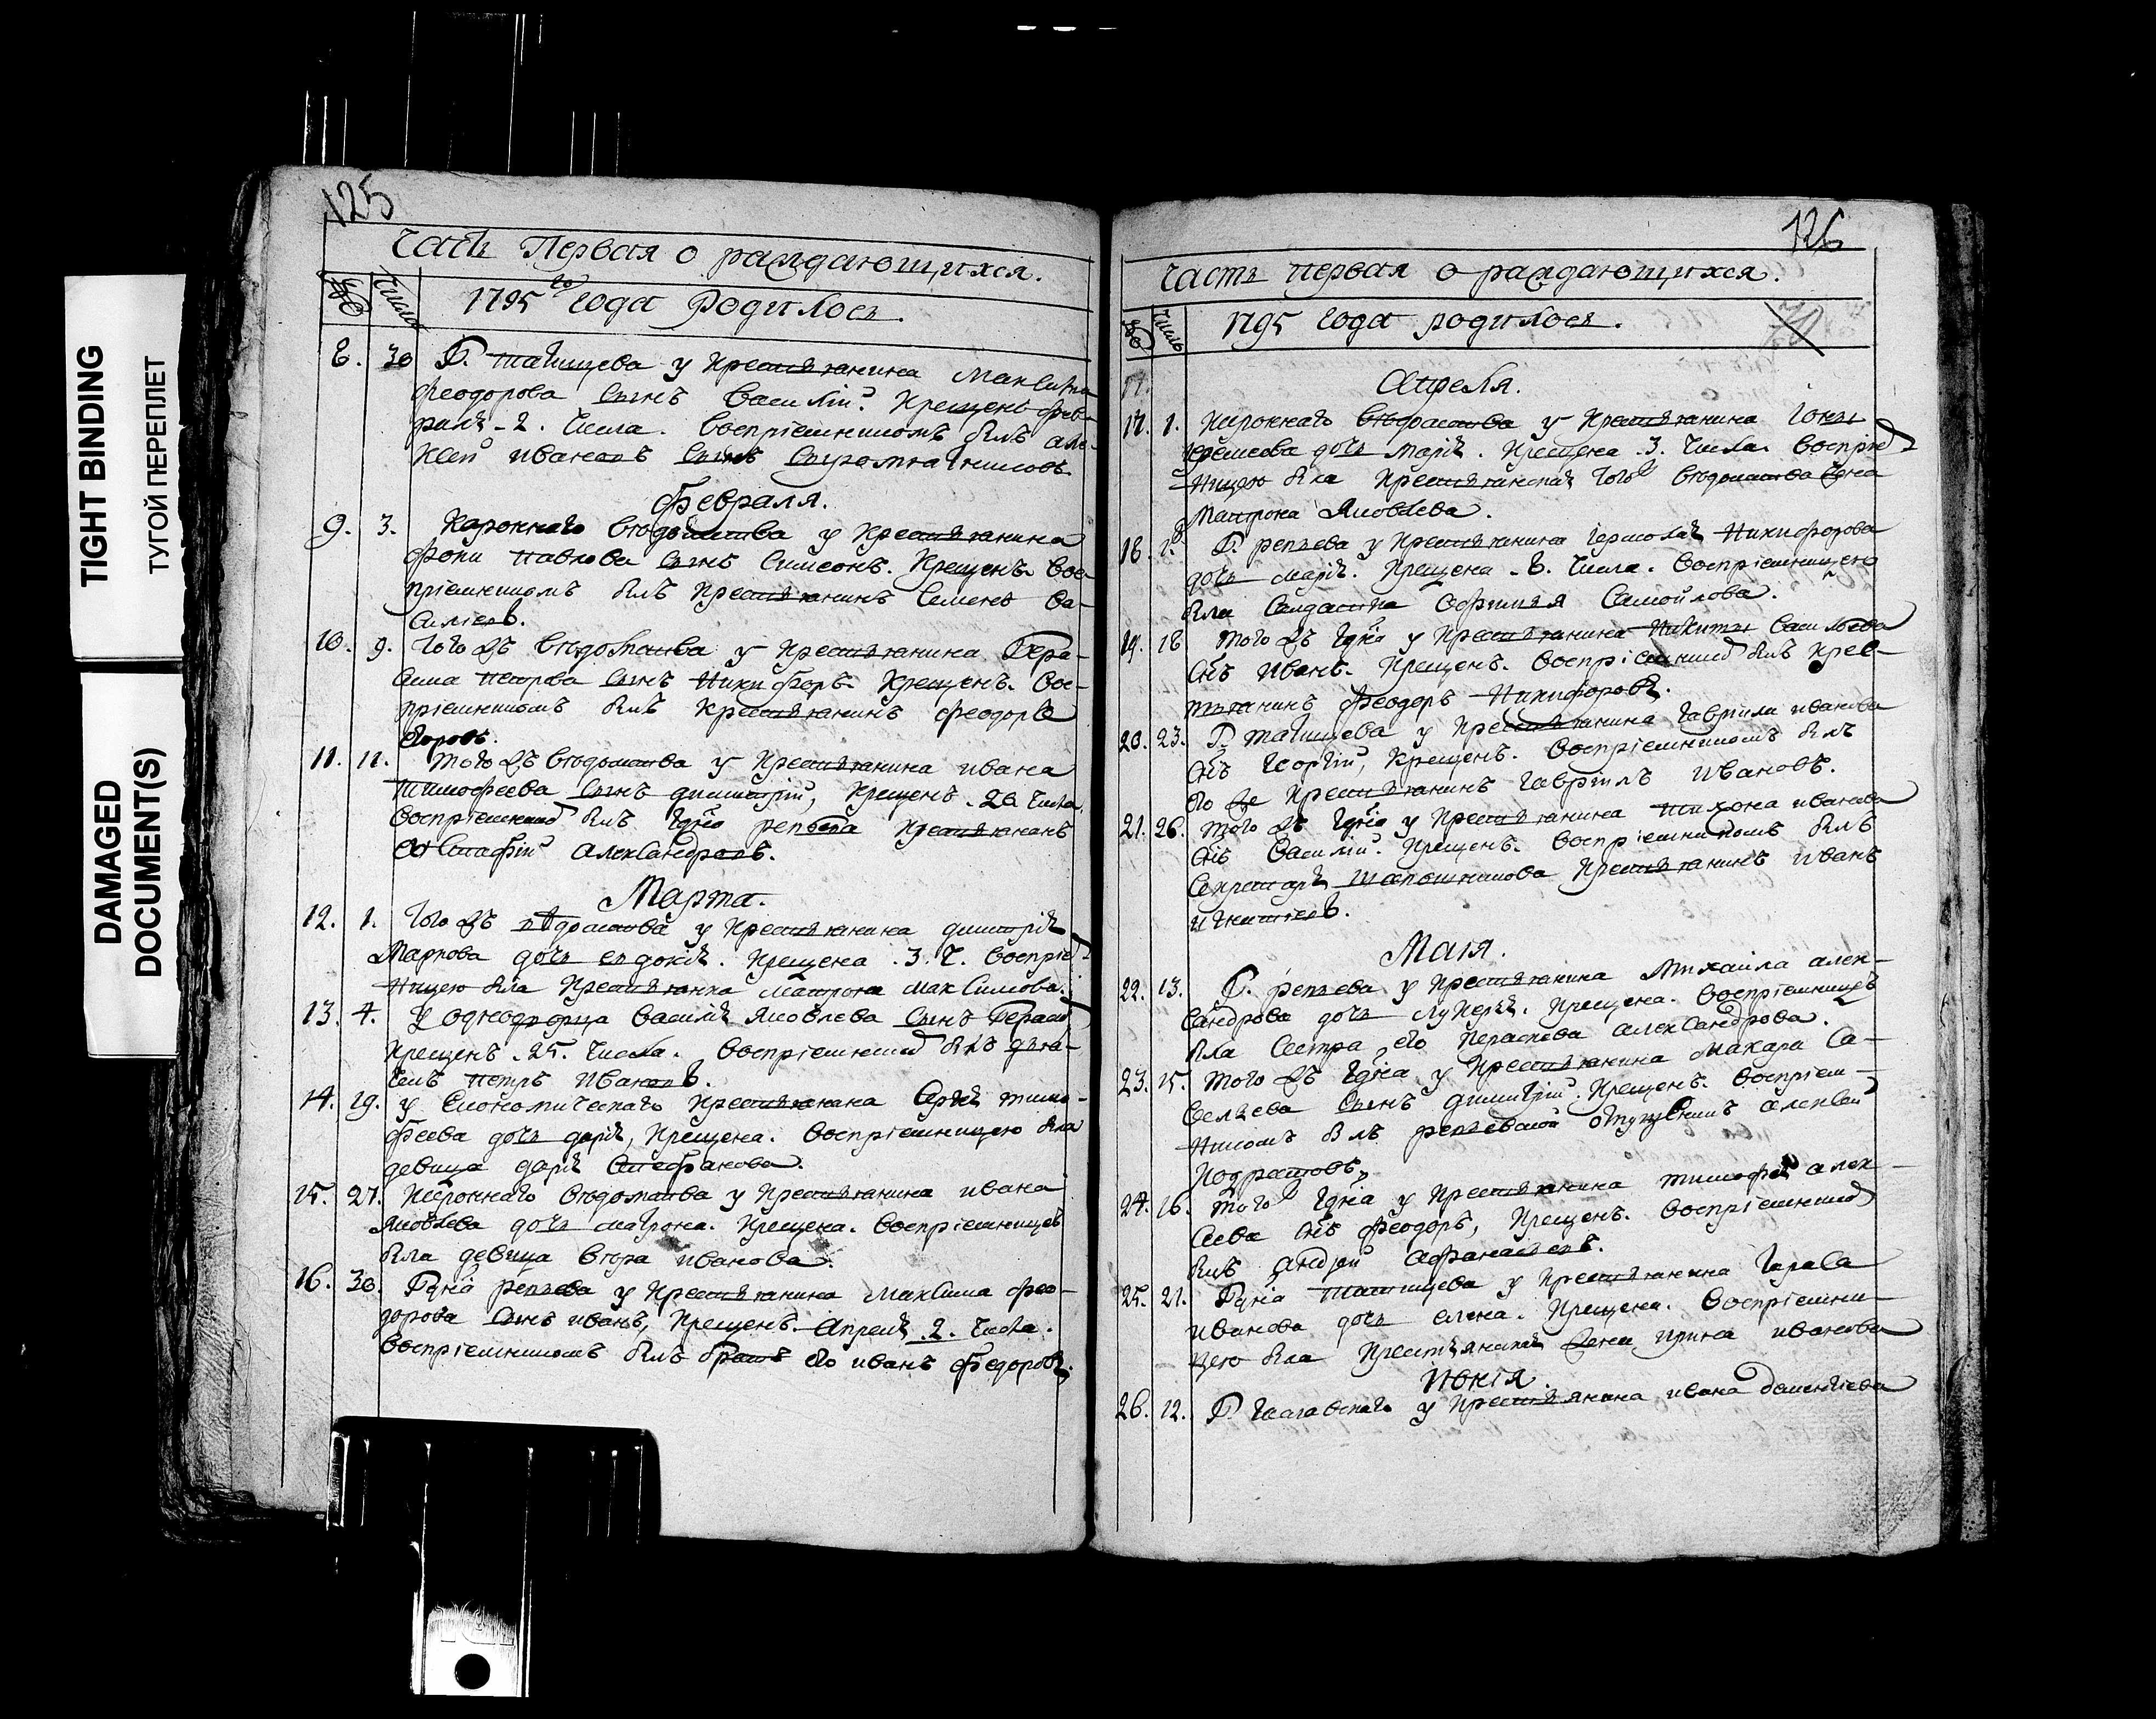 TIGHT BINDING
ТУГОЙ ПЕРЕПЛЕТ
DAMAGED
DOCUMENT(S)
125
Часть Первая о раждающихся.
№ Число
1795го года Родилось.
8. 30 Г. татищева у крестьянина Максима
Феодорова сынъ Василій. Крещенъ Фев-
раля 2. Числа. Воспріемникомъ былъ але-
ксей ивановъ сынъ
Февраля.
9. 3. Короннаго вѣдомства у крестьянина
Фоки Павлова сынъ Симеонъ. Крещенъ. Вос-
пріемникомъ былъ крестьянинъ Семенъ Ва-
силіевъ.
10. 9. Того жъ вѣдомства у крестьянина Гера-
сима Петрова сынъ Никифоръ. Крещенъ. Вос-
пріемникомъ былъ крестьянинъ Феодоръ
Егоровъ.
11. 11. Того жъ вѣдомства у крестьянина ивана
Тимофеева сынъ димитрій, крещенъ. 20 Числа,
Воспріемникомъ былъ Гдна репьева крестьянинъ
Евстафій александровъ.
Марта.
12. 1. Того жъ вѣдомства у крестьянина димитрія
Маркова дочь евдокія. Крещена. 3. Ч. Воспріем-
ницею была крестьянка матрона максимова.
13. 4. У однодворца Василія Яковлева сынъ Герасим
Крещенъ. 25. Числа. Воспріемником былъ дья-
чекъ Петръ Ивановъ.
14. 19. у Економическаго крестьянина Сергѣя тимо-
феева дочь дарія, Крещена. Воспріемницею была
девица дарія Стефанова.
15. 27. Короннаго вѣдомства у крестьянина ивана
Яковлева дочь матрона. Крещена. Воспріемницею
была девица вѣра иванова.
16. 30. Гдна репьева у крестьянина максима фео-
дорова сынъ иванъ, Крещенъ. Апреля 2. Числа.
Воспріемникомъ былъ братъ его иванъ Федоровъ.
126
Часть первая о раждающихся.
№ Число
1795 года родилось.
17.
Апреля.
17. 1. Короннаго вѣдомства у крестьянина Іоны
дочь марія. Крещена. 3. Числа. Воспріем-
ницею была крестьянская того вѣдомства жена
Матрона Яковлева.
18. Г. репьева у крестьянина Іермолая Никифорова
дочь марія. Крещена. 8. Числа. Воспріемницею
была Солдатка Ефимія Самойлова.
19. 18 того жъ Гдна у крестьянина Никиты Васильева
снъ иванъ. Крещенъ. Воспріемником былъ крес-
тьянинъ Феодоръ Никифоровъ.
20. 23. Г. татищева у крестьянина гаврилы иванова
снъ Георгій, крещенъ. Воспріемникомъ былъ
его же крестьянинъ гаврилъ ивановъ.
21. 26. того жъ Гдна у крестьянина тихона иванова
снъ Василій. Крещенъ. Воспріемникомъ былъ
Секретаря шапошникова крестьянинъ иванъ
игнатіевъ.
Маія.
22. 13. Г. репьева у крестьянина Михаила алек-
сандрова дочь лукерья. Крещена. Воспріемницею
была Сестра его параскева александрова.
23. 15. того жъ Гдна у крестьянина макара Са-
вельева сынъ димитрій. Крещенъ. Воспріем-
никомъ былъ репьевской отпущеникъ алексей
24. 16. того Гдна у крестьянина тимофея алек-
сеева снъ феодоръ, крещенъ. Воспріемником
былъ андрей афанасьевъ.
25. 21. Гдна татищева у крестьянина тараса
иванова дочь елена. Крещена. Воспріемни-
цею была крестьянская жена ирина иванова
июнія.
26. 12. Г. у крестьянина ивана